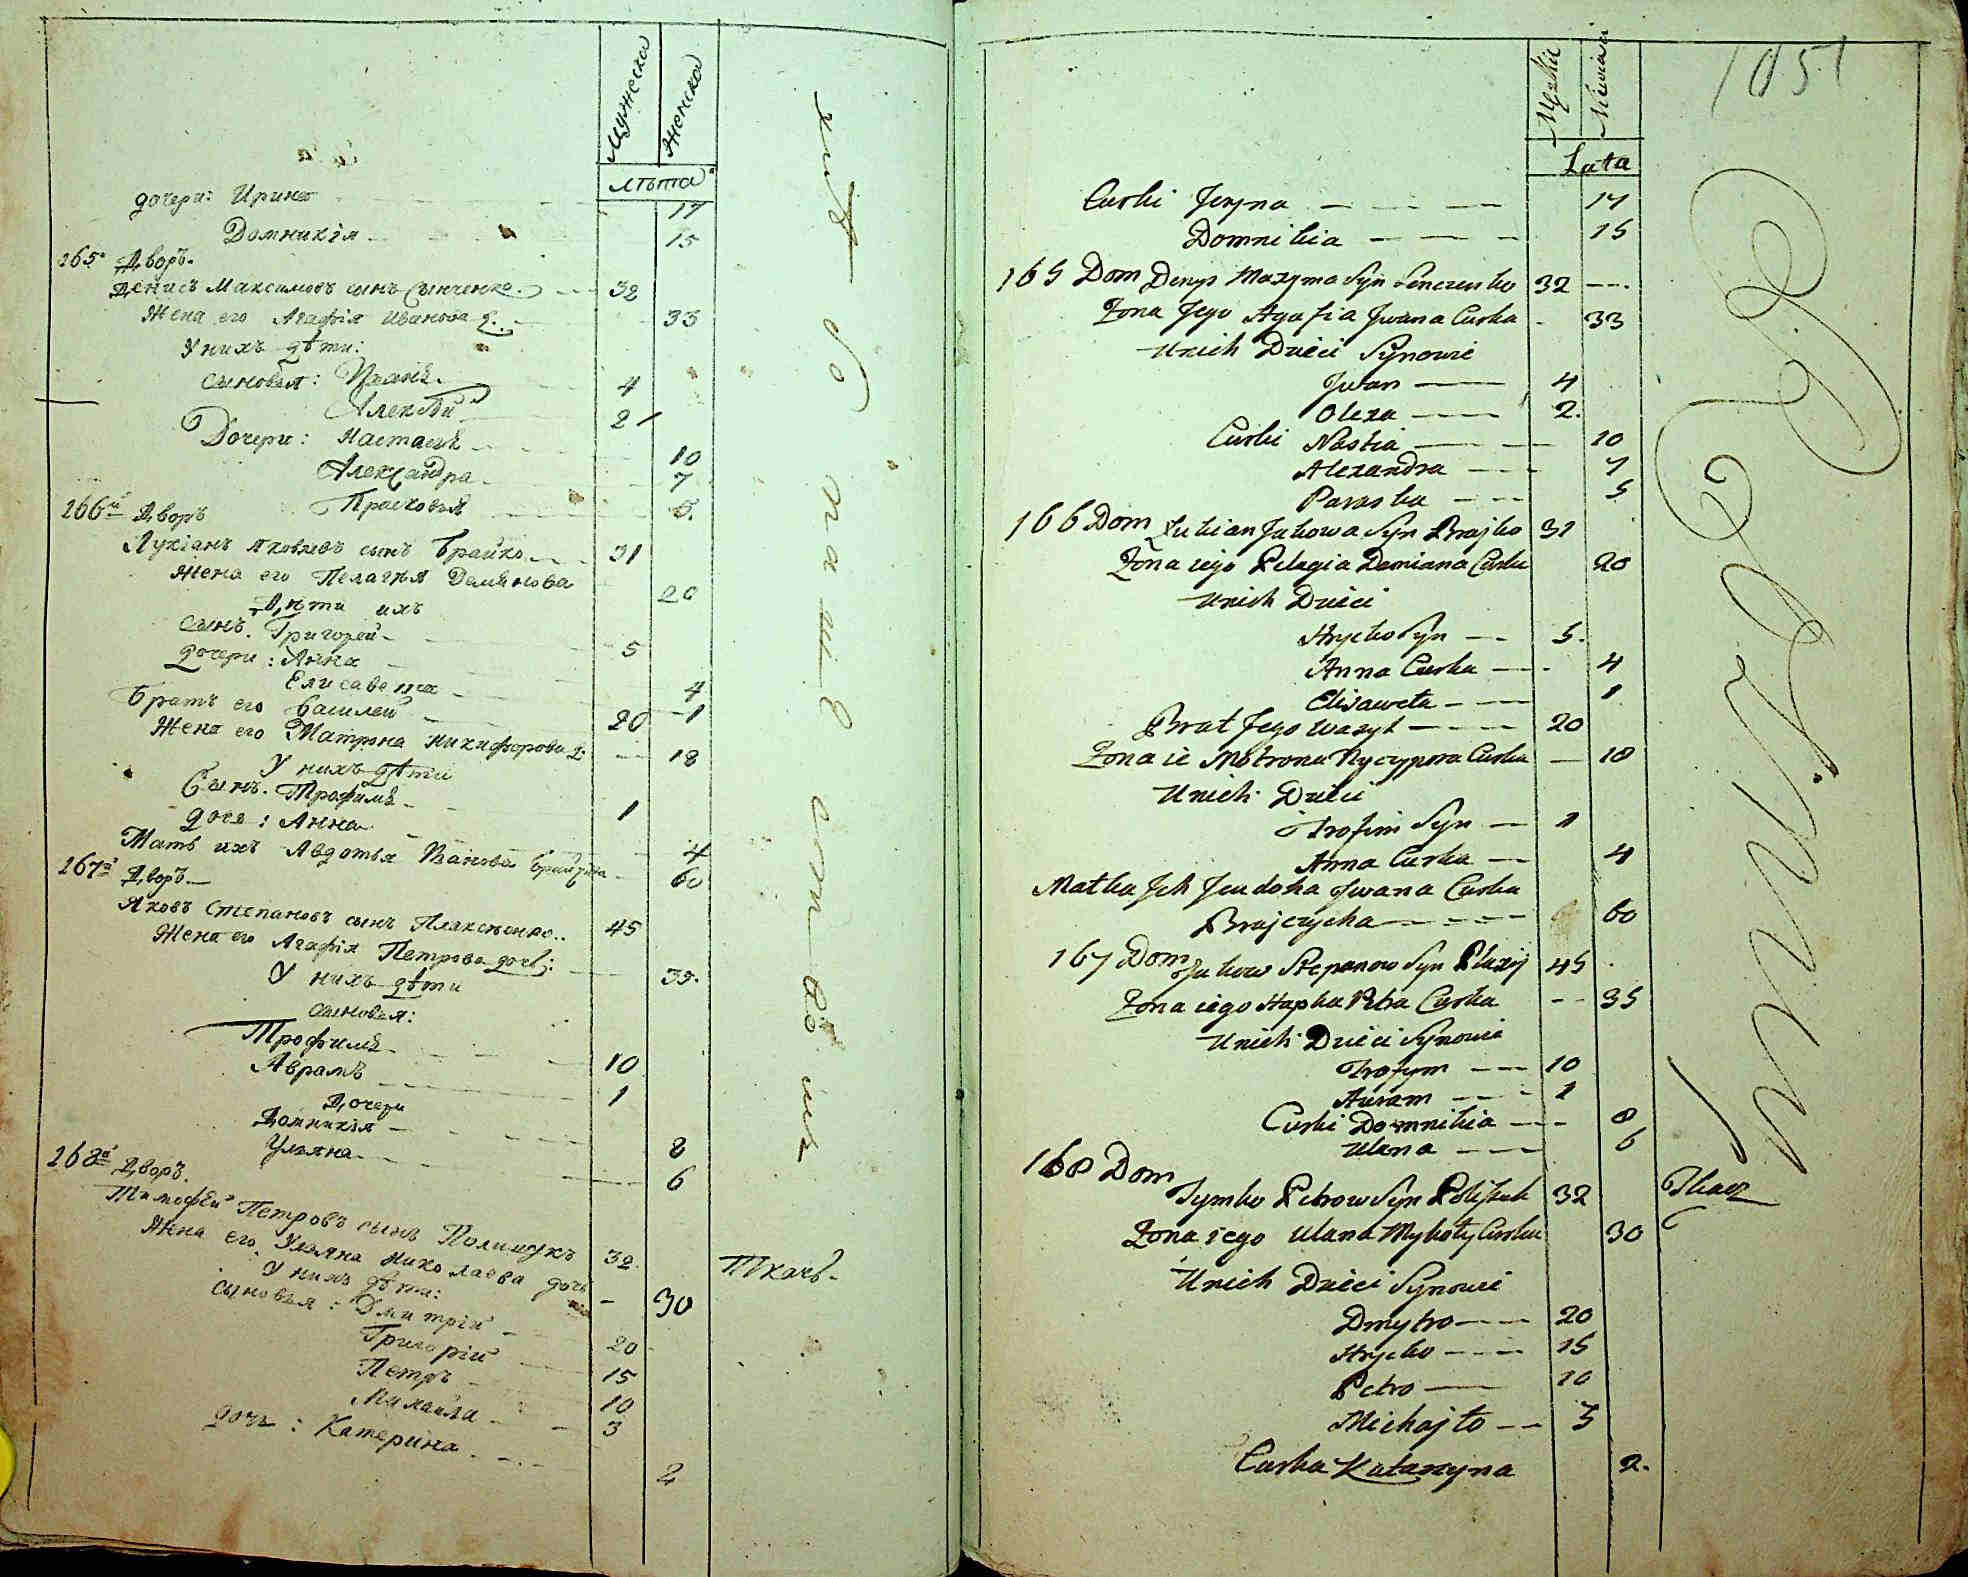 Мужеска
Женска
лѣта
дочери: Ирина 17
Домникія 15
165й Дворъ.
Денисъ Максимовъ сынъ Сѣнченко 32
Жена его Агафія Иванова д. 33
У нихъ дѣти:
сыновья: Иванъ 4
Алексѣй 2
Дочери: Настасья 10
Александра 7
Прасковья 5.
166й Дворъ
Лукіанъ Яковлевъ сынъ Брайко 31
Жена его Пелагѣя Демянова 20
Дѣти ихъ
сынъ. Григорей 5
дочери: Анна 4
Елисавета 1
Братъ его Василей 20
Жена его Матрона Никифорова д. 18
У нихъ дѣти
Сынъ. Трофимъ 1
дочь: Анна 4
Мать ихъ Авдотья Иванова 60
167й Дворъ
Яковъ Степановъ сынъ 45
Жена его Агафія Петрова дочь: 35.
У нихъ дѣти
сыновья:
Трофимъ 10
Аврамъ 1
Дочери
Домникія 8
Уляна 6
168й Дворъ.
Тимофѣй Петровъ сынъ Полищукъ 32
Жена его Уляна Николаева дочь 30
У нихъ дѣти:
сыновья: Дмитрій 20
Григорій 15
Петръ 10
Михайла 3
дочь: Катерина 2
Ткачъ.
1051
Męzkie
Lata
Curki Jeryna 17
Domnikia 15
165 Dom Denys Maxyma Syn Senczenko 32
Zona Jego Agafia Jwana Curka 33
Unich Dzieci Synowie
Jwan 4
Olexa 2.
Curki Nastia 10
Alexandra 7
Paraska 5
166 Dom Lukian Jakowa Syn Brajko 31
Zona iego Pelagia Demiana Curka 20
Unich Dzieci
Hryćko Syn 5.
Anna Curka 4
Elisaweta 1
Brat Jego Wasyl 20
Zona ie Motrona Nyczypora Curka 18
Unich Dzieci
Trofim Syn 1
Anna Curka 4
Matka Jch Jeudokia Jwana Curka
Brajczycha 60
167 Dom Jakow Stepanow Syn 45
Zona iego Hapka Petra Curka 35
Unich Dzieci Synowie
Trofym 10
Awram 1
Curki Domnikia 8
Ulana 6
168 Dom
Tymko Petrow Syn Poliszuk 32
Zona iego Ulana Mykoły Curka 30
Unich Dzieci Synowie
Dmytro 20
Hryćko 15
Petro 10
Michajło 3
Curka Katarzyna 2.
Tkacz